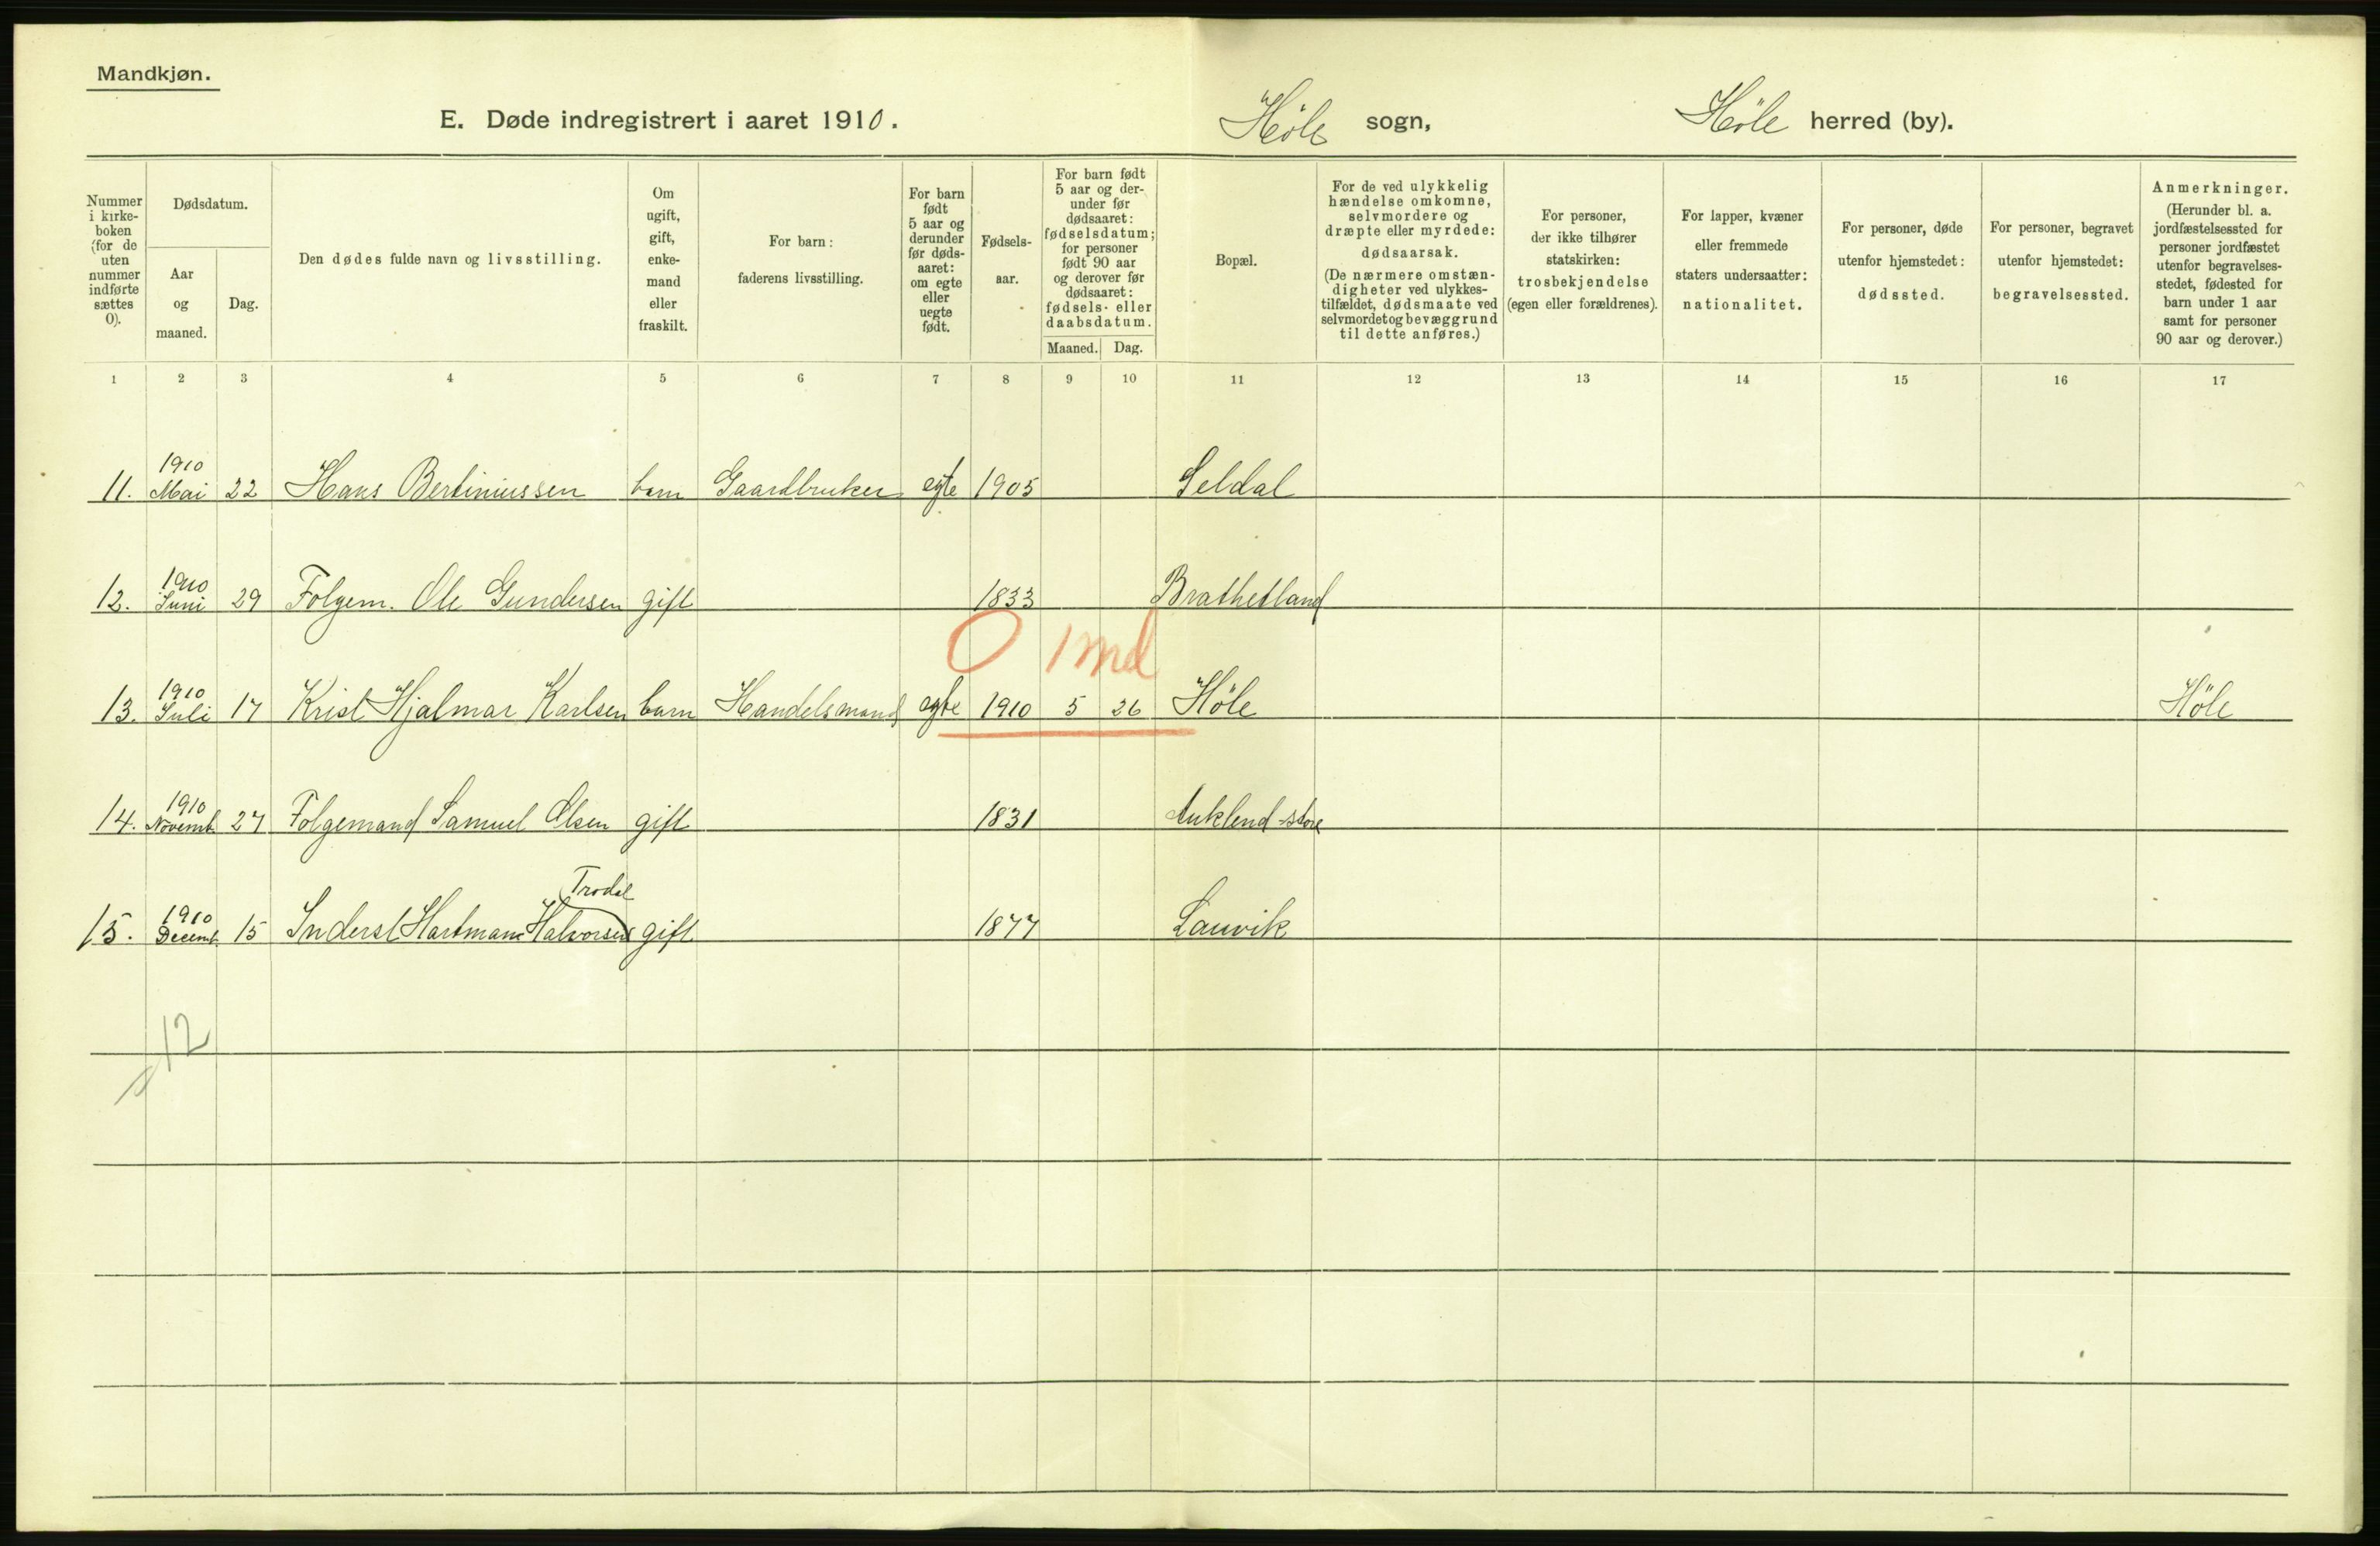 Mandkjøn.
E. Døde indregistrert i aaret 1910.
Höle sogn,
Höle herred (by).
Nummer i kirke-boken (for de uten nummer indførte sættes 0).
Dødsdatum.
Aar og maaned.
Dag.
Den dødes fulde navn og livsstilling.
Om ugift, gift, enke-mand eller fraskilt.
For barn: faderens livsstilling.
For barn født 5 aar og derunder før døds-aaret: om egte eller uegte født.
Fødsels-aar.
For barn født 5 aar og der-under før dødsaaret: fødselsdatum; for personer født 90 aar og derover før dødsaaret: fødsels- eller daabsdatum.
Maaned. Dag.
Bopæl.
For de ved ulykkelig hændelse omkomne, selvmordere og dræpte eller myrdede: dødsaarsak. (De nærmere omstæn-digheter ved ulykkes-tilfældet, dødsmaate ved selvmordet og bevæggrund til dette anføres.)
For personer, der ikke tilhører statskirken: trosbekjendelse (egen eller forældrenes).
For lapper, kvæner eller fremmede staters undersaatter: nationalitet.
For personer, døde utenfor hjemstedet: dødssted.
For personer, begravet utenfor hjemstedet: begravelsessted.
Anmerkninger. (Herunder bl. a. jordfæstelsessted for personer jordfæstet utenfor begravelses-stedet, fødested for barn under 1 aar samt for personer 90 aar og derover.)
1 2 3 4 5 6 7 8 9 10 11 12 13 14 15 16 17
11. 1910 Mai 22 Hans Bertiniussen barn Gaardbruker egte 1905 Seldal
12. 1910 Juni 29 Folgem. Ole Gundersen gift 1833 Brathetland
0 1 md
13. 1910 Juli 17 Krist Hjalmar Karlsen barn Handelsmand egte 1910 5 26 Höle Höle
14. 1910 Novemb. 27 Folgemand Samuel Olsen gift 1831 Auklend-store
Trodal
15. 1910 Decemb. 15 Inderst Hartman Halvorsen gift 1877 Lauvik
12